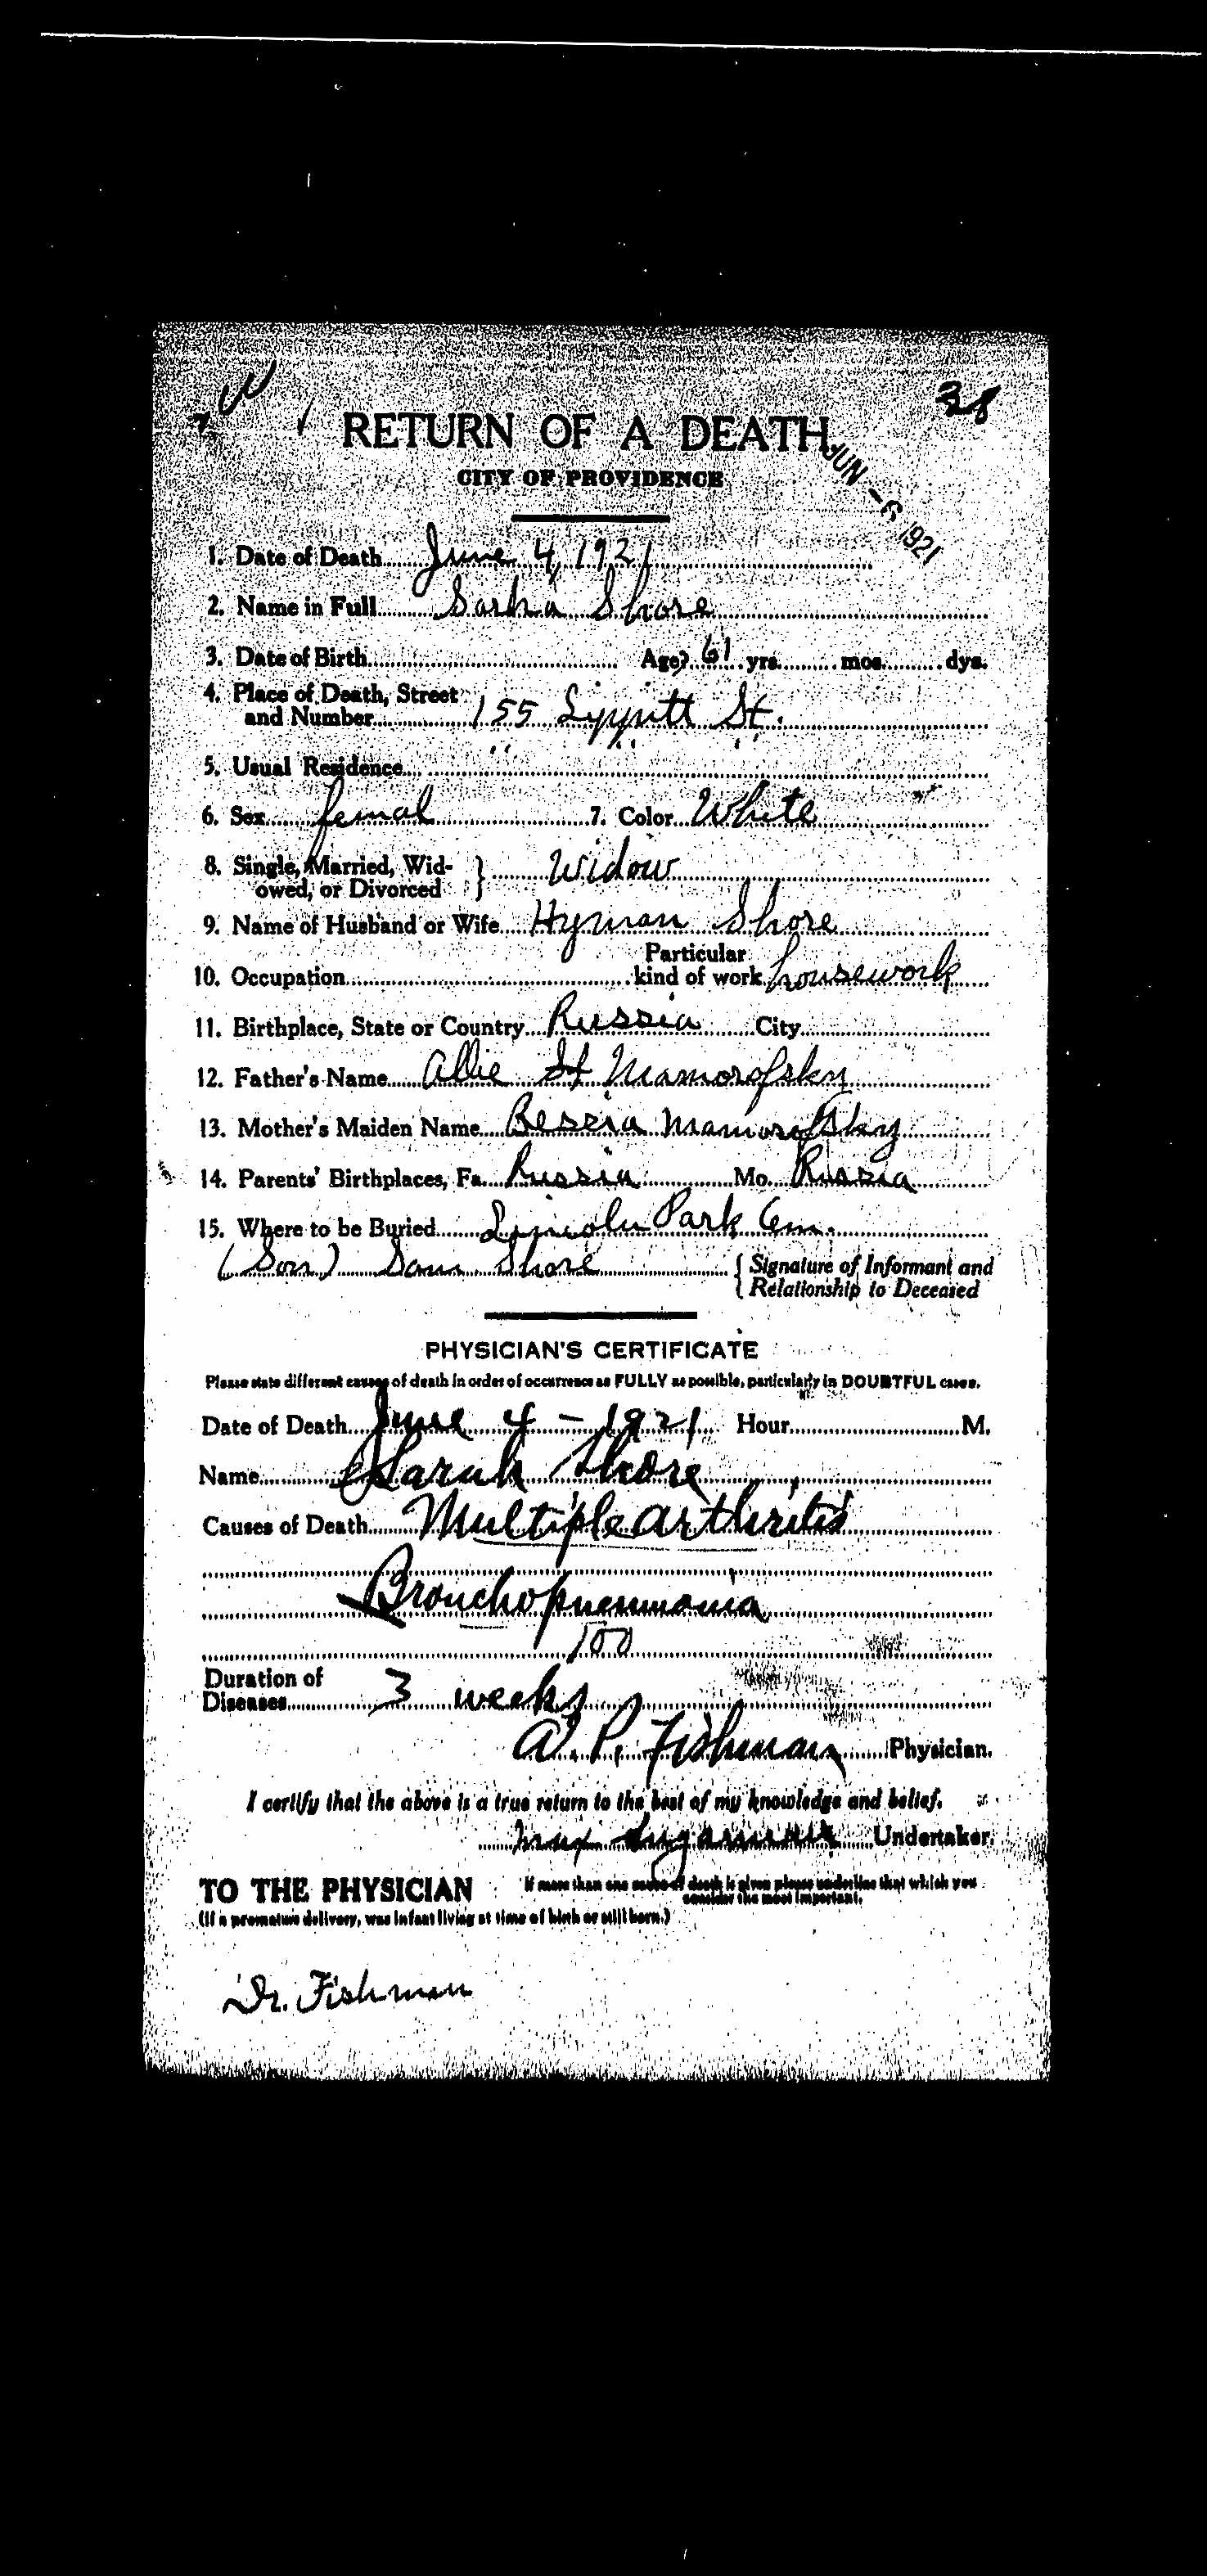 W 38
RETURN OF A DEATH
JUN -6 1921
CITY OF PROVIDENCE
1. Date of Death June 4, 1921
2. Name in Full Sarha Shore
3. Date of Birth Age? 61 yrs. mos. dys.
4. Place of Death, Street
and Number 155 Lippitt St.
5. Usual Residence " " "
6. Sex femal 7. Color White
8. Single, Married, Wid-
owed, or Divorced } Widow
9. Name of Husband or Wife Hyman Shore
Particular
10. Occupation kind of work housework
11. Birthplace, State or Country Russia City
12. Father's Name Allie Mamorofsky
13. Mother's Maiden Name Bessia Mamorofsky
14. Parents' Birthplaces, Fa. Russia Mo. Russia
15. Where to be Buried Lincoln Park Cem.
(Son) Sam Shore { Signature of Informant and
Relationship to Deceased
PHYSICIAN'S CERTIFICATE
Please state different causes of death in order of occurrence as FULLY as possible, particularly in DOUBTFUL cases.
Date of Death June 4 - 1921 Hour M.
Name Sarah Shore
Causes of Death Multiple arthritis
Bronchopneumonia
100
Duration of
Diseases 3 weeks
A. P. Fishman Physician.
I certify that the above is a true return to the best of my knowledge and belief.
Max Sugarman Undertaker.
TO THE PHYSICIAN If more than one cause of death is given please underline that which you
consider the most important.
(If a premature delivery, was infant living at time of birth or still born.)
Dr. Fishman